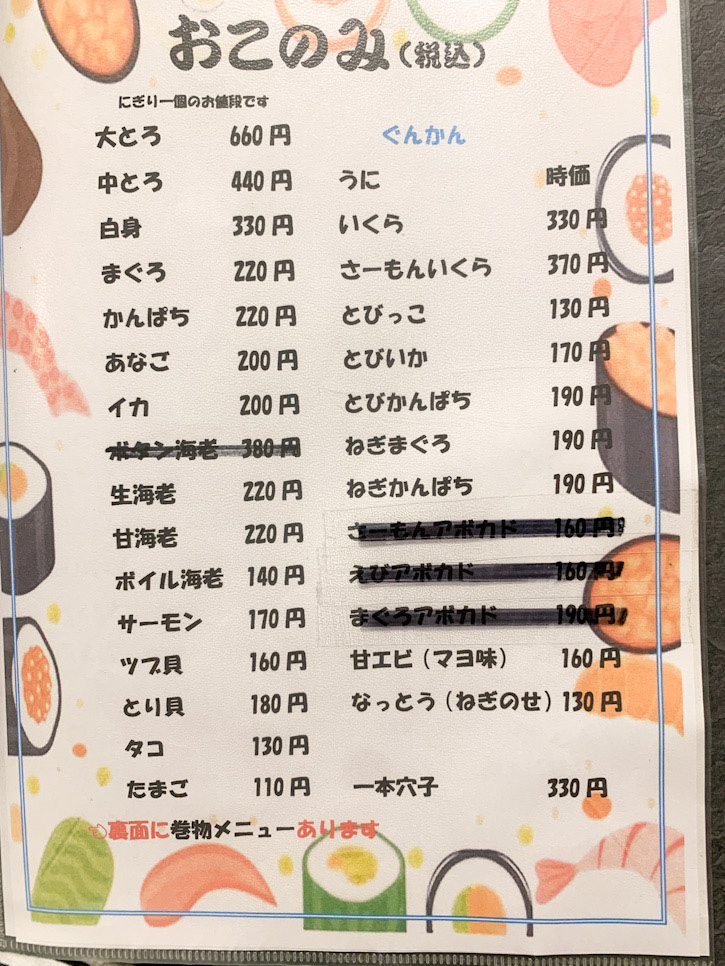 おこのみ(税込)
にぎり一個のお値段です
大とろ 660円
中とろ 440円
白身 330円
まぐろ 220円
かんぱち 220円
あなご 200円
イカ 200円
ボタン海老 380円
生海老 220円
甘海老 220円
ボイル海老 140円
サーモン 170円
ツブ貝 160円
とり貝 180円
タコ 130円
たまご 110円
ぐんかん
うに 時価
いくら 330円
さーもんいくら 370円
とびっこ 130円
とびいか 170円
とびかんぱち 190円
ねぎまぐろ 190円
ねぎかんぱち 190円
さーもんアボカド 160円
えびアボカド 160円
まぐろアボカド 190円
甘エビ(マヨ味) 160円
なっとう(ねぎのせ) 130円
一本穴子 330円
裏面に巻物メニューあります